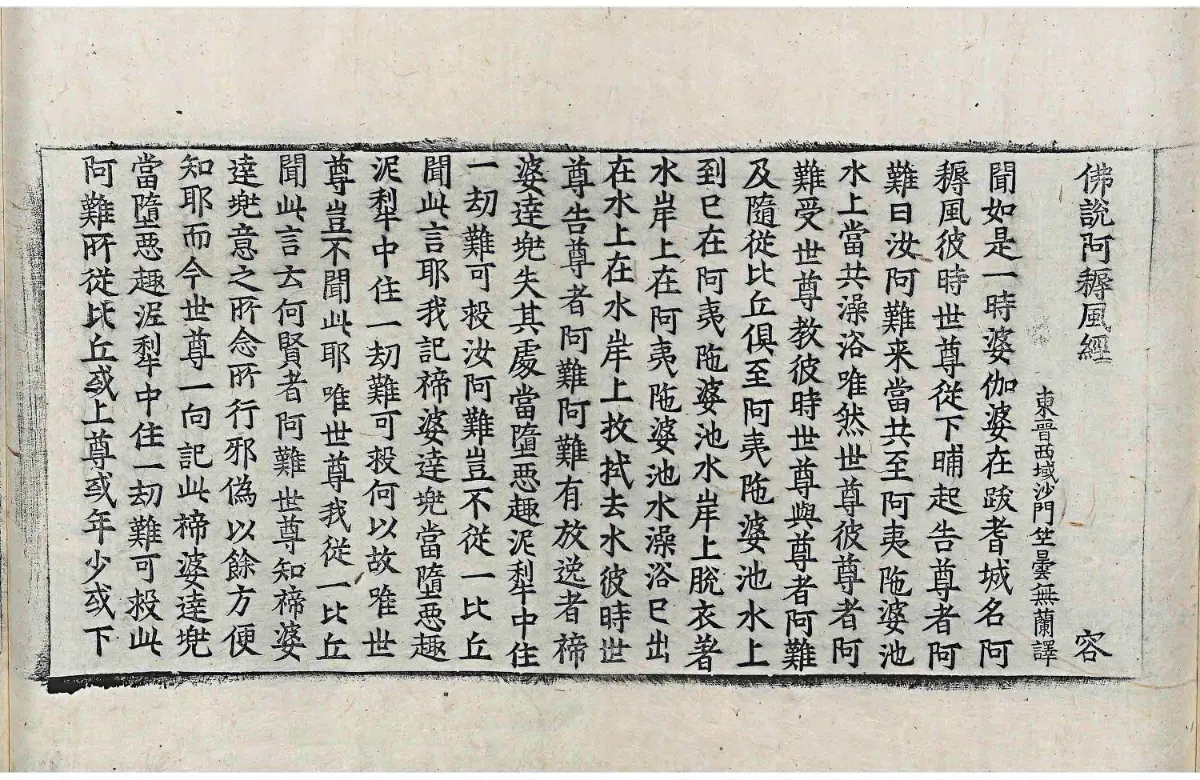 佛說阿耨風經 容
東晉西域沙門竺曇無蘭譯
聞如是一時婆伽婆在跋耆城名阿
耨風彼時世尊從下晡起告尊者阿
難曰汝阿難来當共至阿夷陁婆池
水上當共澡浴唯然世尊彼尊者阿
難受世尊教彼時世尊與尊者阿難
及隨從比丘俱至阿夷陁婆池水上
到已在阿夷陁婆池水岸上脫衣著
水岸上在阿夷陁婆池水澡浴已出
在水上在水岸上抆拭去水彼時世
尊告尊者阿難阿難有放逸者禘
婆達兜失其處當墮惡趣泥犁中住
一劫難可救汝阿難豈不從一比丘
聞此言耶我記禘婆達兜當墮惡趣
泥犁中住一劫難可救何以故唯世
尊豈不聞此耶唯世尊我從一比丘
聞此言云何賢者阿難世尊知禘婆
達兜意之所念所行邪偽以餘方便
知耶而今世尊一向記此禘婆達兜
當墮惡趣泥犁中住一劫難可救此
阿難所從比丘或上尊或年少或下